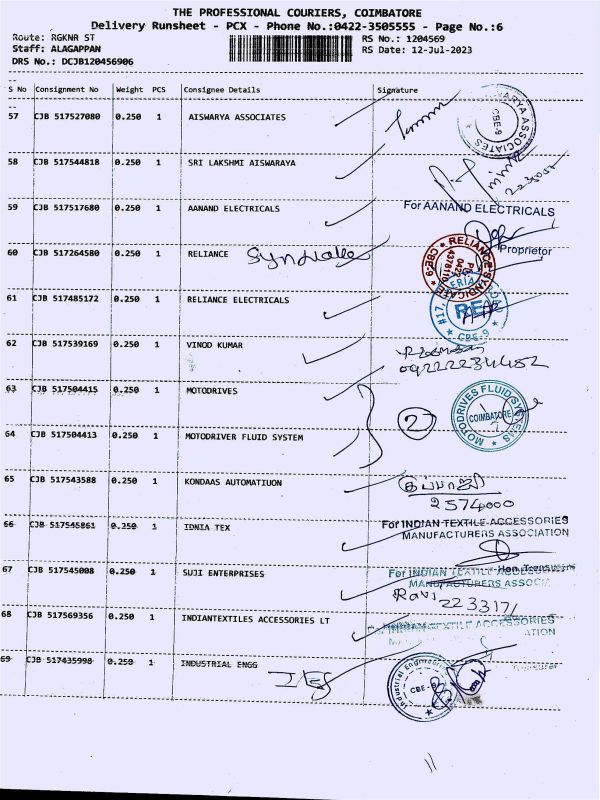 THE PROFESSIONAL COURIERS, COIMBATORE
Delivery Runsheet - PCX - Phone No.:0422-3505555 - Page No.:6
Route: RGKNR ST
RS No.: 1204569
Staff: ALAGAPPAN
RS Date: 12-Jul-2023
DRS No.: DCJB120456906
S No Consignment No Weight PCS Consignee Details Signature
57 CJB 517527080 0.250 1 AISWARYA ASSOCIATES
AISWARYA ASSOCIATES CBE-9
58 CJB 517544818 0.250 1 SRI LAKSHMI AISWARAYA
59 CJB 517517680 0.250 1 AANAND ELECTRICALS
For AANAND ELECTRICALS
Proprietor
60 CJB 517264580 0.250 1 RELIANCE Syndicate
RELIANCE SYNDICATE CBE-9
61 CJB 517485172 0.250 1 RELIANCE ELECTRICALS
CBE-9
62 CJB 517539169 0.250 1 VINOD KUMAR
63 CJB 517504415 0.250 1 MOTODRIVES
MOTODRIVES FLUID SYSTEMS COIMBATORE
2
64 CJB 517504413 0.250 1 MOTODRIVER FLUID SYSTEM
65 CJB 517543588 0.250 1 KONDAAS AUTOMATIUON
2574000
66 CJB 517545861 0.250 1 IDNIA TEX
For INDIAN TEXTILE ACCESSORIES
MANUFACTURERS ASSOCIATION
Hon. Treasurer
67 CJB 517545008 0.250 1 SUJI ENTERPRISES
For INDIAN TEXTILE ACCESSORIES
MANUFACTURERS ASSOCIA
Ravi
223317
68 CJB 517569356 0.250 1 INDIANTEXTILES ACCESSORIES LT
INDIAN TEXTILE ACCESSORIES
ATION
69 CJB 517435998 0.250 1 INDUSTRIAL ENGG
Industrial Engineering CBE-9